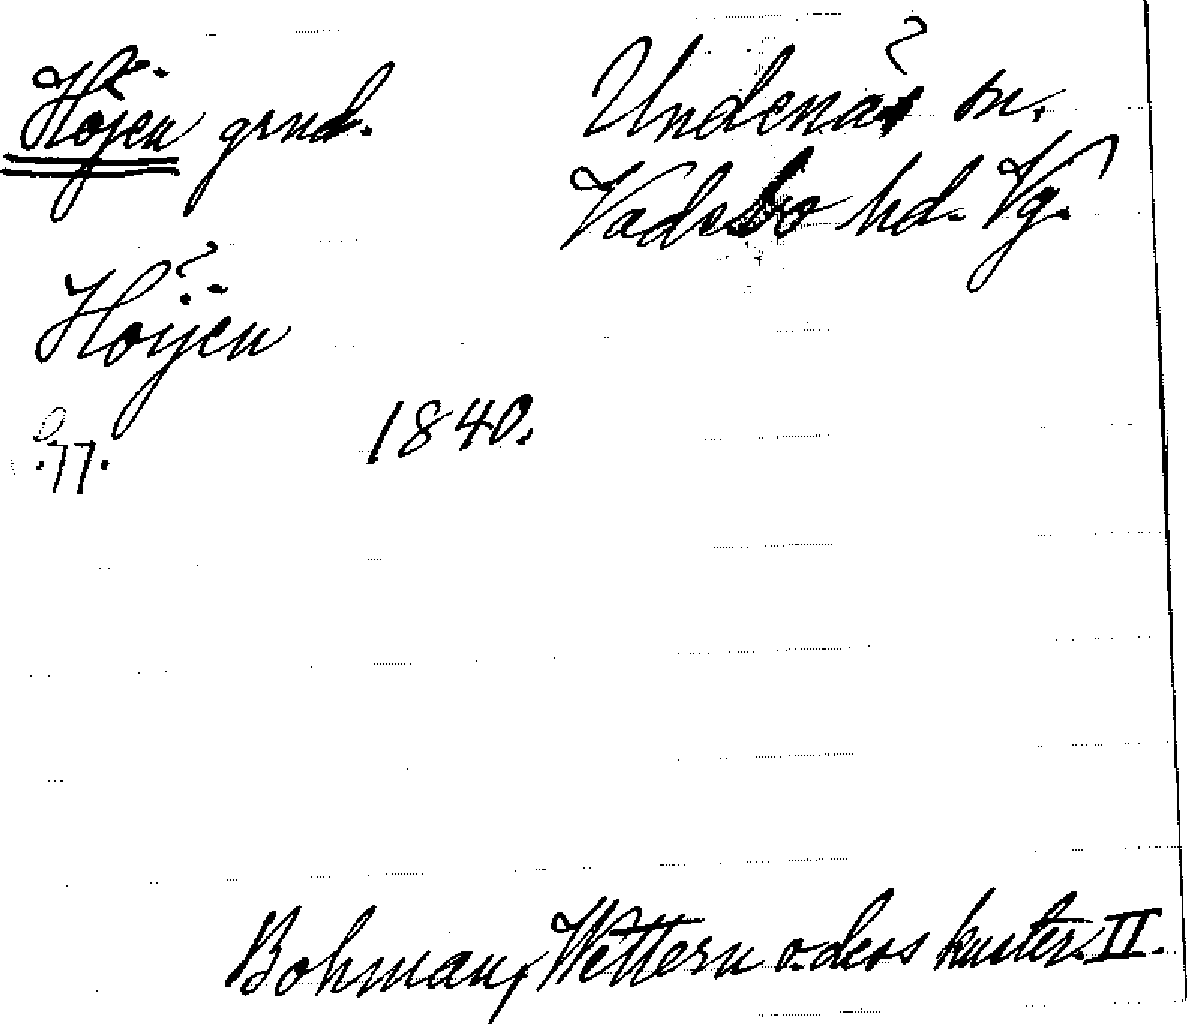 Höjen grnd.
Undenäs sn.
Vadsbo hd. Vg.
Höijen
s. 77.
1840.
Bohman, Wettern o. dess kuster. II.